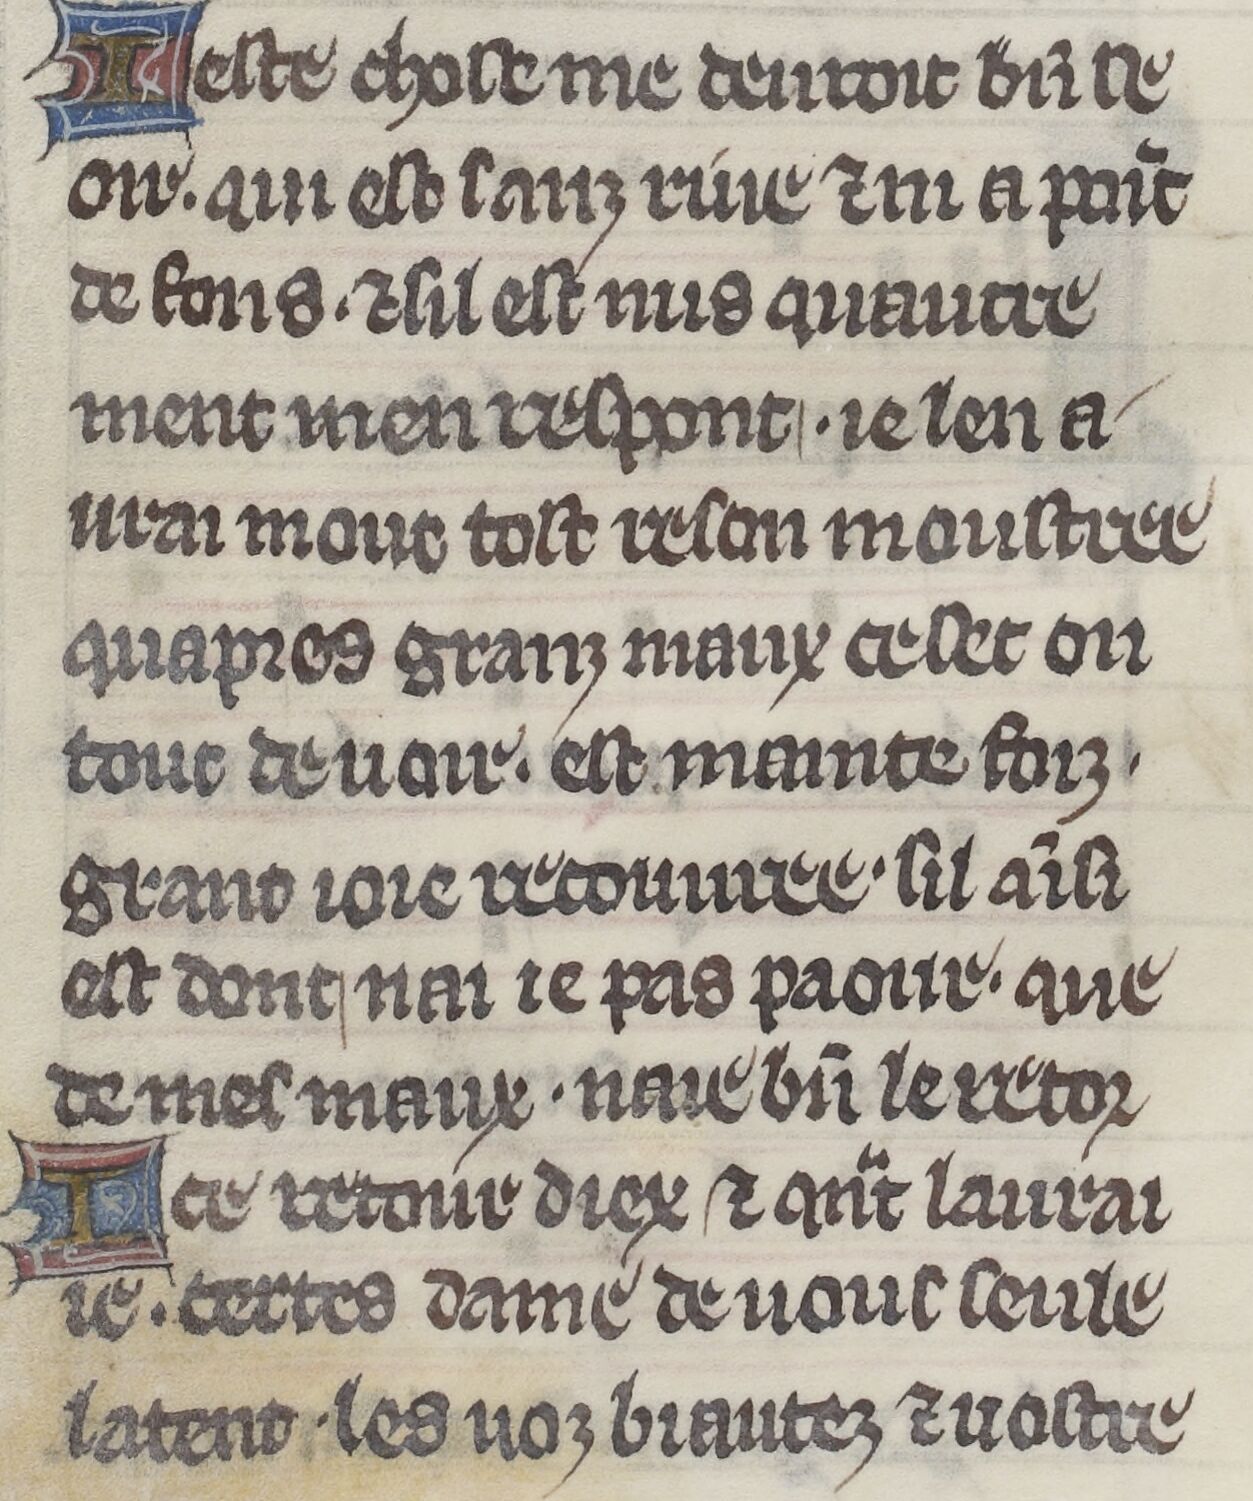 Teste chose me deuroit bn̄ se
oir. qui est sanz riúie ⁊ ni a poīt
de fons. ⁊ sil est nus quautre
ment men respont . ie len a
urai mout tost reson moustree
quapres granz maux ce set on
tout de uoir. est mainte foiz.
grant ioie recouuree. sil aīsi
est dont nai ie pas paour. que
de mes maux . naie bn̄ le retor
Ice retour diex ⁊ qn̄t laurai
ie . certes dame de vous seule
latent . les uoz biautez ⁊ uostre